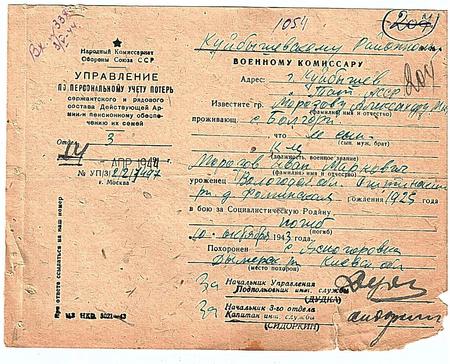 Вх. 338
1054
(207)
204
Народный Комиссариат
Обороны Союза ССР
УПРАВЛЕНИЕ
ПО ПЕРСОНАЛЬНОМУ УЧЕТУ ПОТЕРЬ
сержантского и рядового
состава Действующей Армии и пенсионному обеспечению их семей
Отдел 3
АПР 1944
№ УП/3
г. Москва
При ответе ссылаться на наш номер
Куйбышевскому Районному
ВОЕННОМУ КОМИССАРУ
Адрес: г. Куйбышев
Тат АССР
Известите гр. Морозову Александру
(фамилия, имя и отчество)
проживающ. с. Болгары
что ее сын
(сын, муж, брат)
к-ец
(должность, военное звание)
Морозов Иван Маркович
(фамилия, имя и отчество)
уроженец Вологодской обл.
рн д. рождения 1925
в бою за Социалистическую Родину
погиб
10 октября 1943 (погиб)
Похоронен с. Ясногородка
Дымерск Киевск. обл
(место похорон)
За Начальник Управления
Подполковник инт. службы
(ДУДКА)
За Начальник 3-го отдела
Капитан инт. службы
(СИДОРКИН)